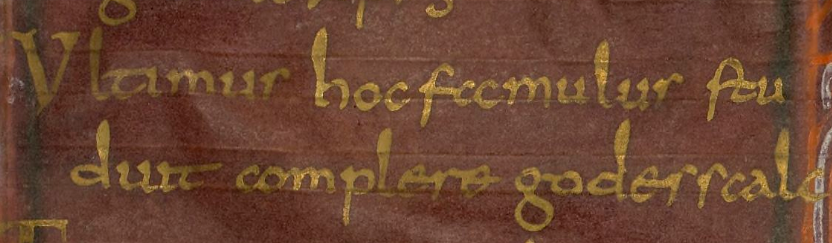 Vltimus hoc famulus stu
duit complere godesscalc